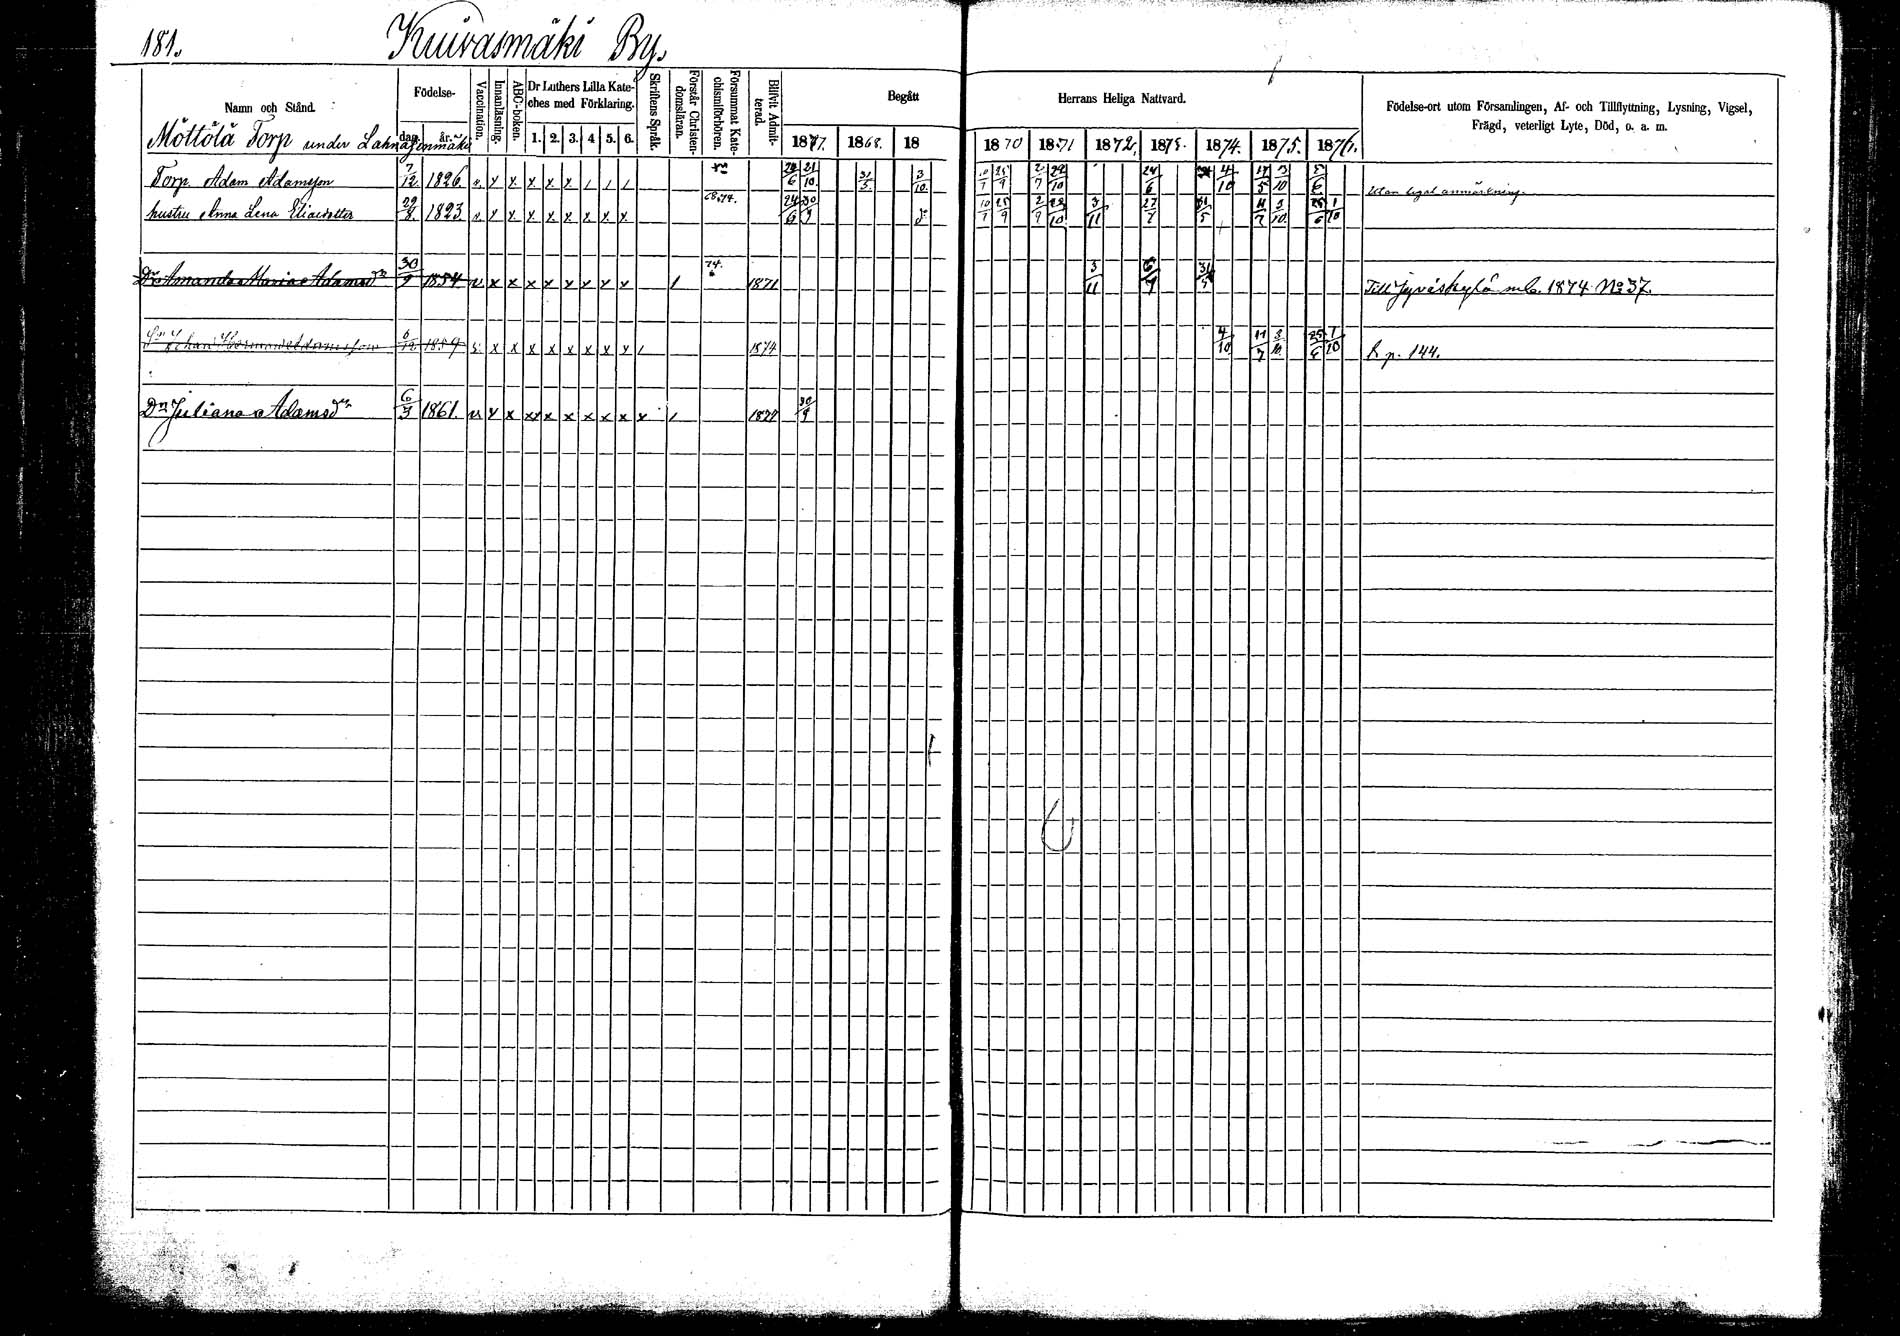 181. Kuivasmäki By.
Namn och Stånd. Födelse- dag. år. Vaccination. Innanläsning. ABC-boken. Dr Luthers Lilla Kate- ches med Förklaring. 1. 2. 3. 4 5. 6. Skriftens Språk. Förstår Christen- domsläran. Försummat Kate- chismiförhören. Blifvit Admit- terad. Begått Herrans Heliga Nattvard. Födelse-ort utom Församlingen, Af- och Tillflyttning, Lysning, Vigsel, Frägd, veterligt Lyte, Död, o. a. m.
1877. 1868. 18 1870 1871 1872. 1873. 1874. 1875. 1876.
Möttölä Torp under
Torp. Adam Adamsson 7/12 1826. v. x x x x x / / / 24/6 21/10 31/5 3/10 10/7 25/9 2/7 29/10 24/6 4/10 11/5 3/10 5/6 Utan legal anmärkning.
hustru Anna Lena Eliasdotter 29/8 1823. v. x x x x x x x x 68.74. 24/6 30/9 10/7 25/9 2/9 29/10 3/11 27/7 31/5 11/7 3/10 25/6 1/10
Dr Amanda Maria Adamsdr 30/9 1854 v. x x x x x x x x / 74. 1871 3/11 6/9 31/5 Till Jyväskylä mlc. 1874 No 37.
Sn Johan Herman Adamsson 6/12 1859 x x x x x x x x / 1874 4/10 11/7 3/10 25/6 1/10 R p. 144.
Dr Juliana Adamsdr 6/3 1861. v x x xx x x x x x x / 1877 30/9